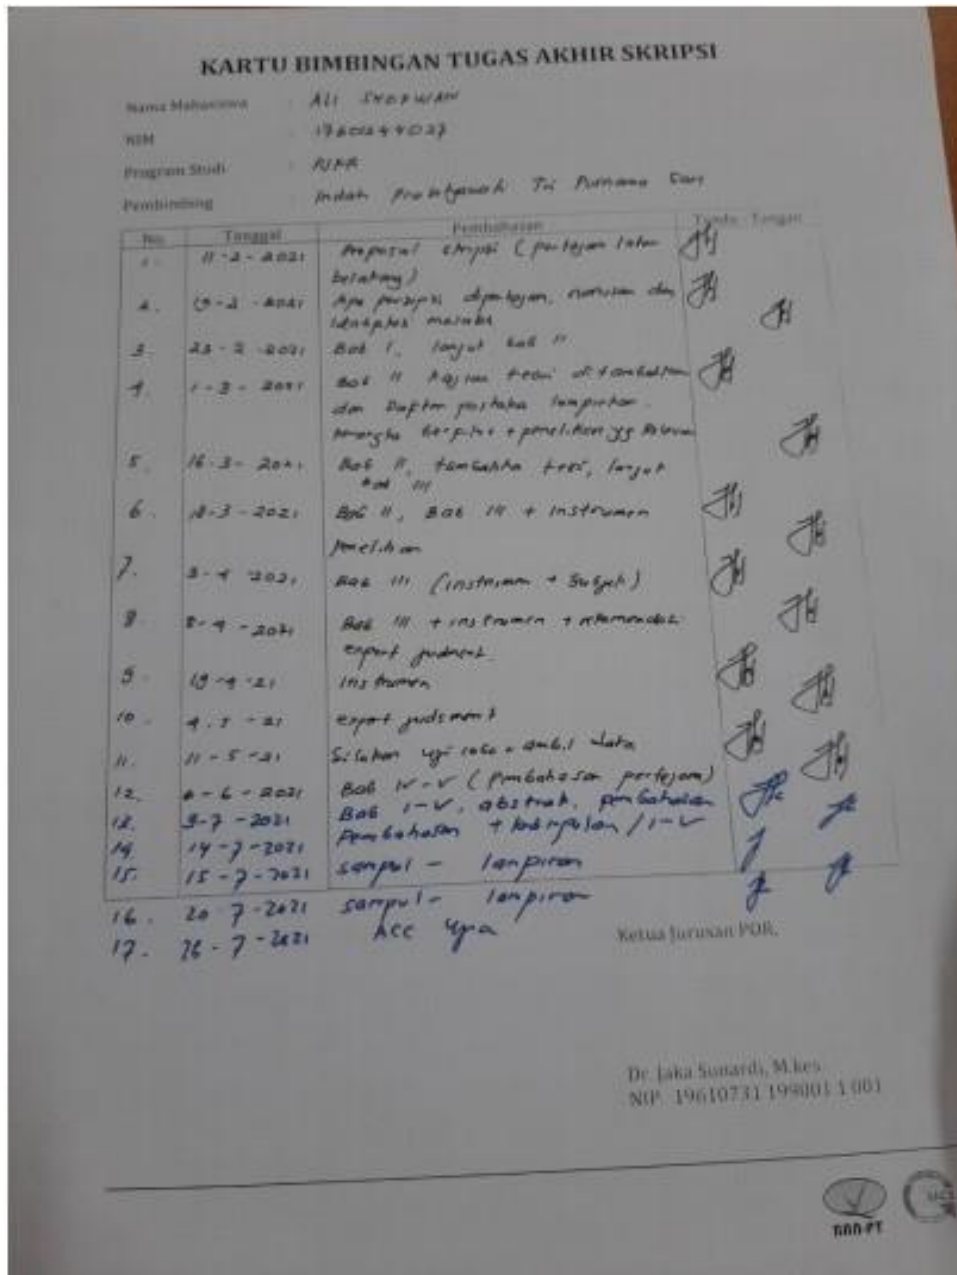 KARTU BIMBINGAN TUGAS AKHIR SKRIPSI
Nama Mahasiswa : ALI SHOFWAN
NIM : 17601244027
Program Studi : PJKR
Pembimbing : Indah Tri Purnama Sari
No. Tanggal Pembahasan Tanda Tangan
1. 11-2-2021 Proposal skripsi (pertajam latar
belakang)
2. 19-2-2021 Apa dipertajam, dan
masalah
3. 23-2-2021 Bab I, lanjut bab II
4. 1-3-2021 Bab II Kajian teori ditambahkan
dan Daftar pustaka lampirkan.
+ penelitian yg Relevan
5. 16-3-2021 Bab II, teori, lanjut
Bab III
6. 18-3-2021 Bab II, Bab III + Instrumen
penelitian
7. 3-4-2021 Bab III (instrumen + Subjek)
8. 8-4-2021 Bab III + instrumen +
expert
9. 19-4-21 Instrumen
10. 4-5-21 expert judsment
11. 11-5-21 Silahkan uji coba + ambil data
12. 6-2021 Bab IV-V (Pembahasan pertajam)
13. 9-7-2021 Bab I-V, abstrak, pembahasan
14. 14-7-2021 pembahasan + / I-V
15. 15-7-2021 sampul - lampiran
16. 20-7-2021 sampul - lampiran
17. 26-7-2021 Acc ujia
Ketua Jurusan POR,
Dr. Jaka Sunardi, M.kes
NIP. 19610731 199001 1 001
BAN-PT